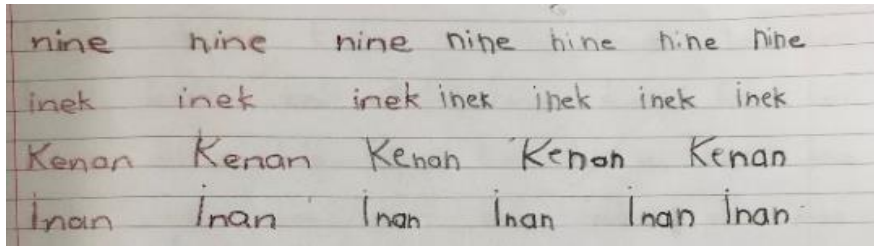 nine nine nine nine nine nine nine
inek inek inek inek inek inek inek
Kenan Kenan Kenan Kenan Kenan
İnan İnan İnan İnan İnan İnan